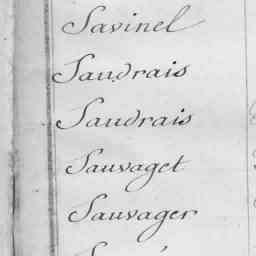 Savinel
Saudrais
Saudrais
Sauvaget
Sauvager